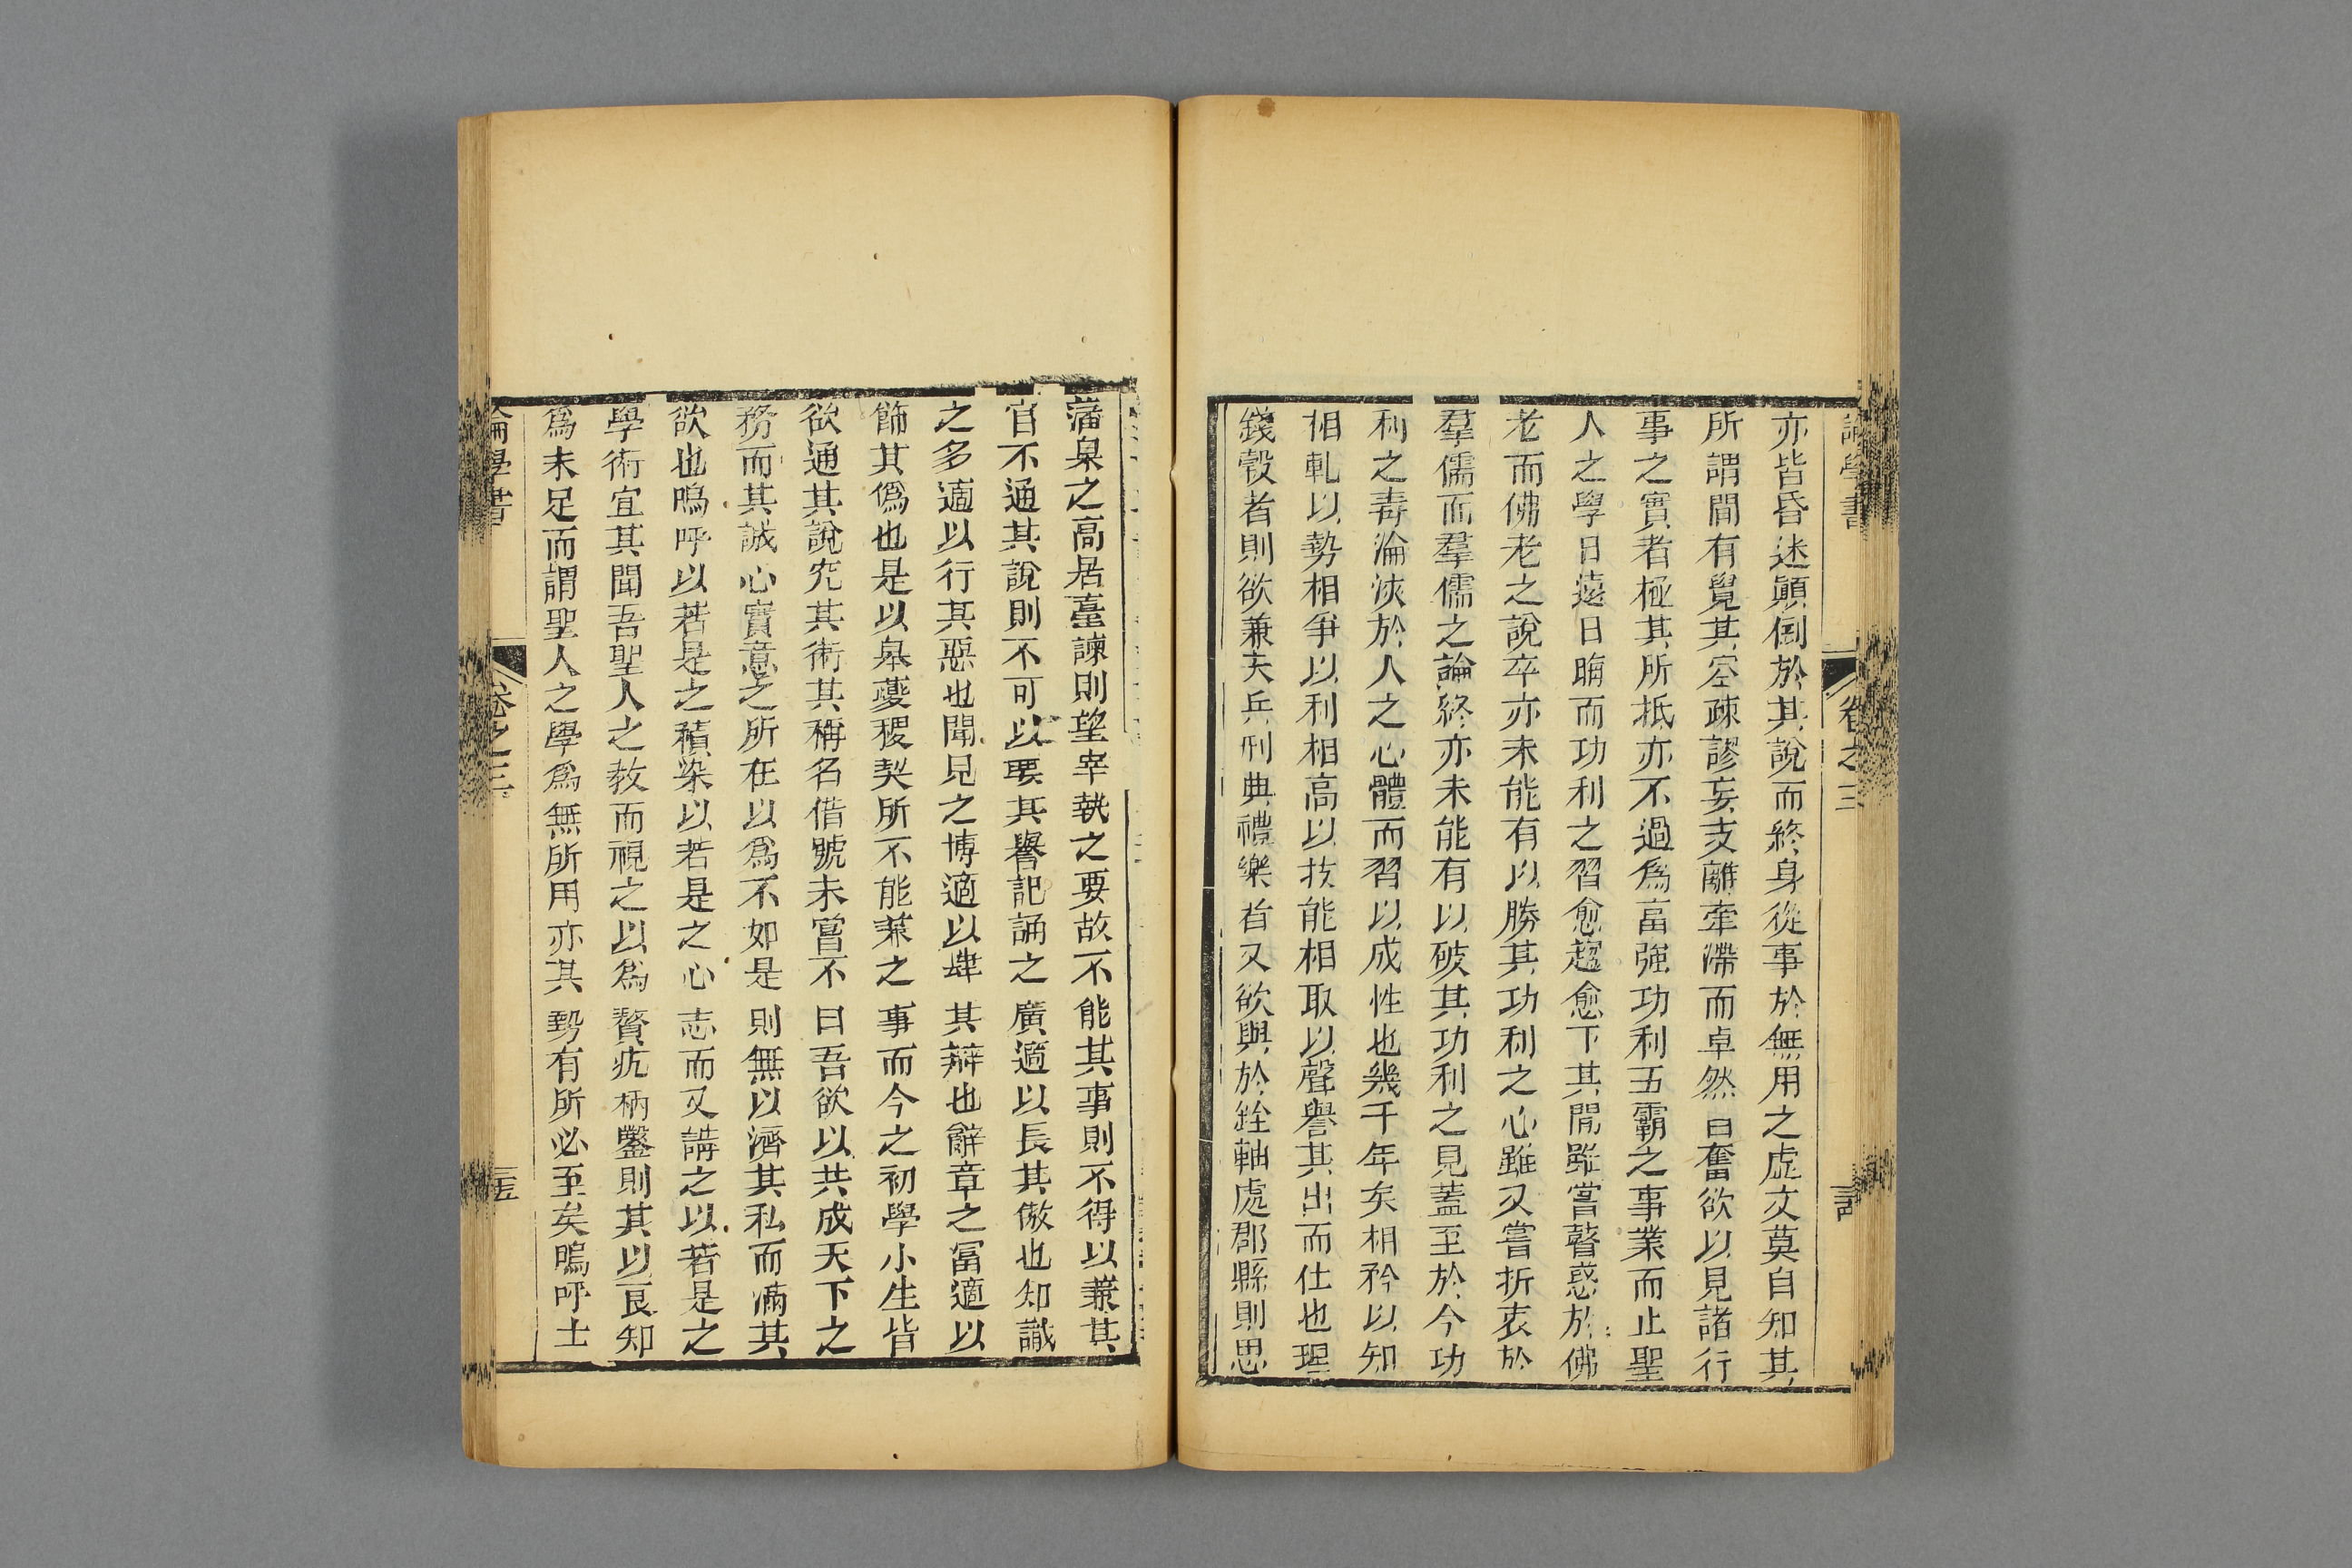 亦皆昏迷顚倒於其說而終身從事於無用之虛文莫自知其
所謂間有覺其空疎謬妄支離牽滯而卓然自奮欲以見諸行
事之實者極其所抵亦不過爲富強功利五霸之事業而止聖
人之學日遠日晦而功利之習愈趨愈下其閒雖嘗瞽惑於佛
老而佛老之說卒亦未能有以勝其功利之心雖又嘗折衷於
羣儒而羣儒之論終亦未能有以破其功利之見蓋至於今功
利之毒淪浹於人之心體而習以成性也幾千年矣相矜以知
相軋以勢相爭以利相高以技能相取以聲譽其出而仕也理
錢穀者則欲兼夫兵刑典禮樂者又欲與於銓軸處郡縣則思
藩臬之高居臺諫則望宰執之要故不能其事則不得以兼其
官不通其說則不可以要其譽記誦之廣適以長其傲也知識
之多適以行其惡也聞見之博適以肆其辯也辭章之富適以
飾其僞也是以皋夔稷契所不能兼之事而今之初學小生皆
欲通其說究其術其稱名借號未嘗不曰吾欲以共成天下之
務而其誠心實意之所在以爲不如是則無以濟其私而滿其
欲也嗚呼以若是之積染以若是之心志而又講之以若是之
學術宜其聞吾聖人之教而視之以爲贅疣枘鑿則其以良知
爲未足而謂聖人之學爲無所用亦其勢有所必至矣嗚呼士
論學書
卷之三